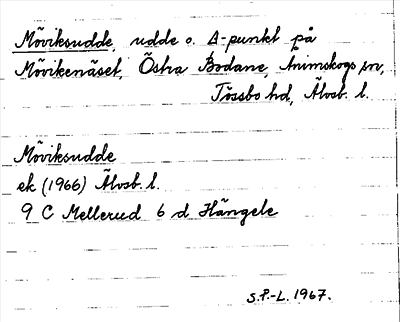 Möviksudde, udde o. Δ-punkt på
Mövikenäset, Östra Bodane, Ånimskogs sn,
Tössbo hd, Älvsb. l.
Möviksudde
ek (1966) Älvsb. l.
9 C Mellerud 6 d Hängele
S.P.-L. 1967.